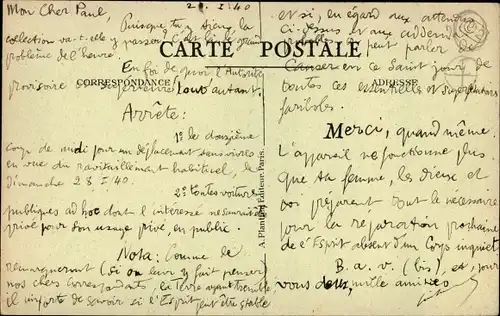 2.1.40
Mon Cher Paul,
Puisque tu y tiens la
collection va-t-elle y passer? C'est là le grand
problème de l'heure
CARTE POSTALE
CORRESPONDANCE
En foi de quoi l'Autorité
provisoire persévère tout autant.
Arrête:
1º le douzième
coup de midi pour un déplacement sans vivres
en vue du ravitaillement habituel, le
dimanche 28 I 40
2º toutes voitures
publiques ad hoc dont l'intéressé ne saurait
privé pour son usage privé, en public.
Nota: Comme le
remarqueront (si on leur y fait penser)
nos chers correspondants, la Terre ayant tremblé
il importe de savoir si l'Esprit peut être stable
A. Plantard Editeur, Paris.
et si, en égard aux attendus
ci-dessus et aux addenda
on peut parler de
en ce Saint jour de
toutes ces essentielles et
fariboles.
ADRESSE
Merci, quand même
L'appareil ne fonctionne plus
que ta femme, les dieux et
vos préparent tout le nécessaire
pour la réparation prochaine
de l'Esprit absent d'un Corps inquiet
B. a. v. (bis), et, pour
vous deux, mille amitiés